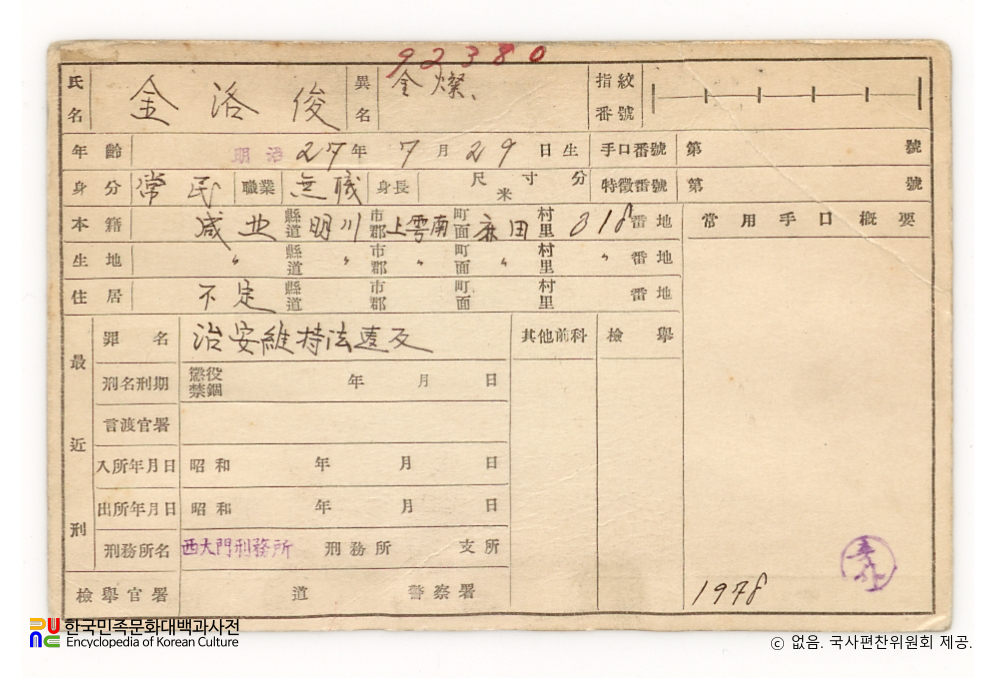 92380
氏名 金洛俊 異名 金燦、 指紋番號
年齡 明治 27年 7月 29日生 手口番號 第 號
身分 常民 職業 無職 身長 尺 寸 分 米 特徵番號 第 號
本籍 咸北 縣道 明川 市郡 上雩南 町面 麻田 村里 318 番地 常用手口槪要
生地 〃 縣道 〃 市郡 〃 町面 〃 村里 〃 番地
住居 不定 縣道 市郡 町面 村里 番地
最近刑 罪名 治安維持法違反 其他前科 檢擧
刑名刑期 懲役 禁錮 年 月 日
言渡官署
入所年月日 昭和 年 月 日
出所年月日 昭和 年 月 日
刑務所名 西大門刑務所 刑務所 支所
檢擧官署 道 警察署 1978
한국민족문화대백과사전
Encyclopedia of Korean Culture
ⓒ 없음. 국사편찬위원회 제공.